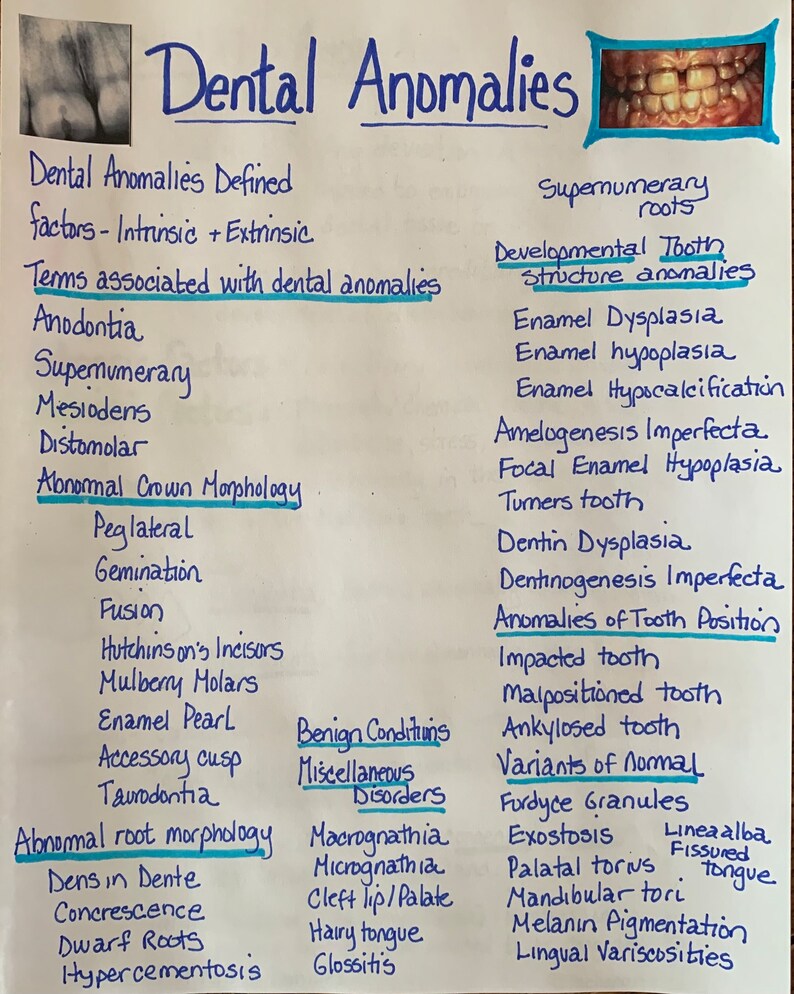 Dental Anomalies
Dental Anomalies Defined
factors - Intrinsic + Extrinsic
Terms associated with dental anomalies
Anodontia
Supernumerary
Mesiodens
Distomolar
Abnormal Crown Morphology
Peglateral
Gemination
Fusion
Hutchinson's Incisors
Mulberry Molars
Enamel Pearl
Accessory cusp
Taurodontia
Abnormal root morphology
Dens in Dente
Concrescence
Dwarf Roots
Hypercementosis
Benign Conditions
Miscellaneous
Disorders
Macrognathia
Micrognathia
Cleft lip/Palate
Hairy tongue
Glossitis
Supernumerary
roots
Developmental Tooth
Structure anomalies
Enamel Dysplasia
Enamel hypoplasia
Enamel Hypocalcification
Amelogenesis Imperfecta
Focal Enamel Hypoplasia
Turners tooth
Dentin Dysplasia
Dentinogenesis Imperfecta
Anomalies of Tooth Position
Impacted tooth
Malpositioned tooth
Ankylosed tooth
Variants of Normal
Fordyce Granules
Exostosis
Palatal torius
Mandibular tori
Melanin Pigmentation
Lingual Variscosities
Linea alba
Fissured
tongue